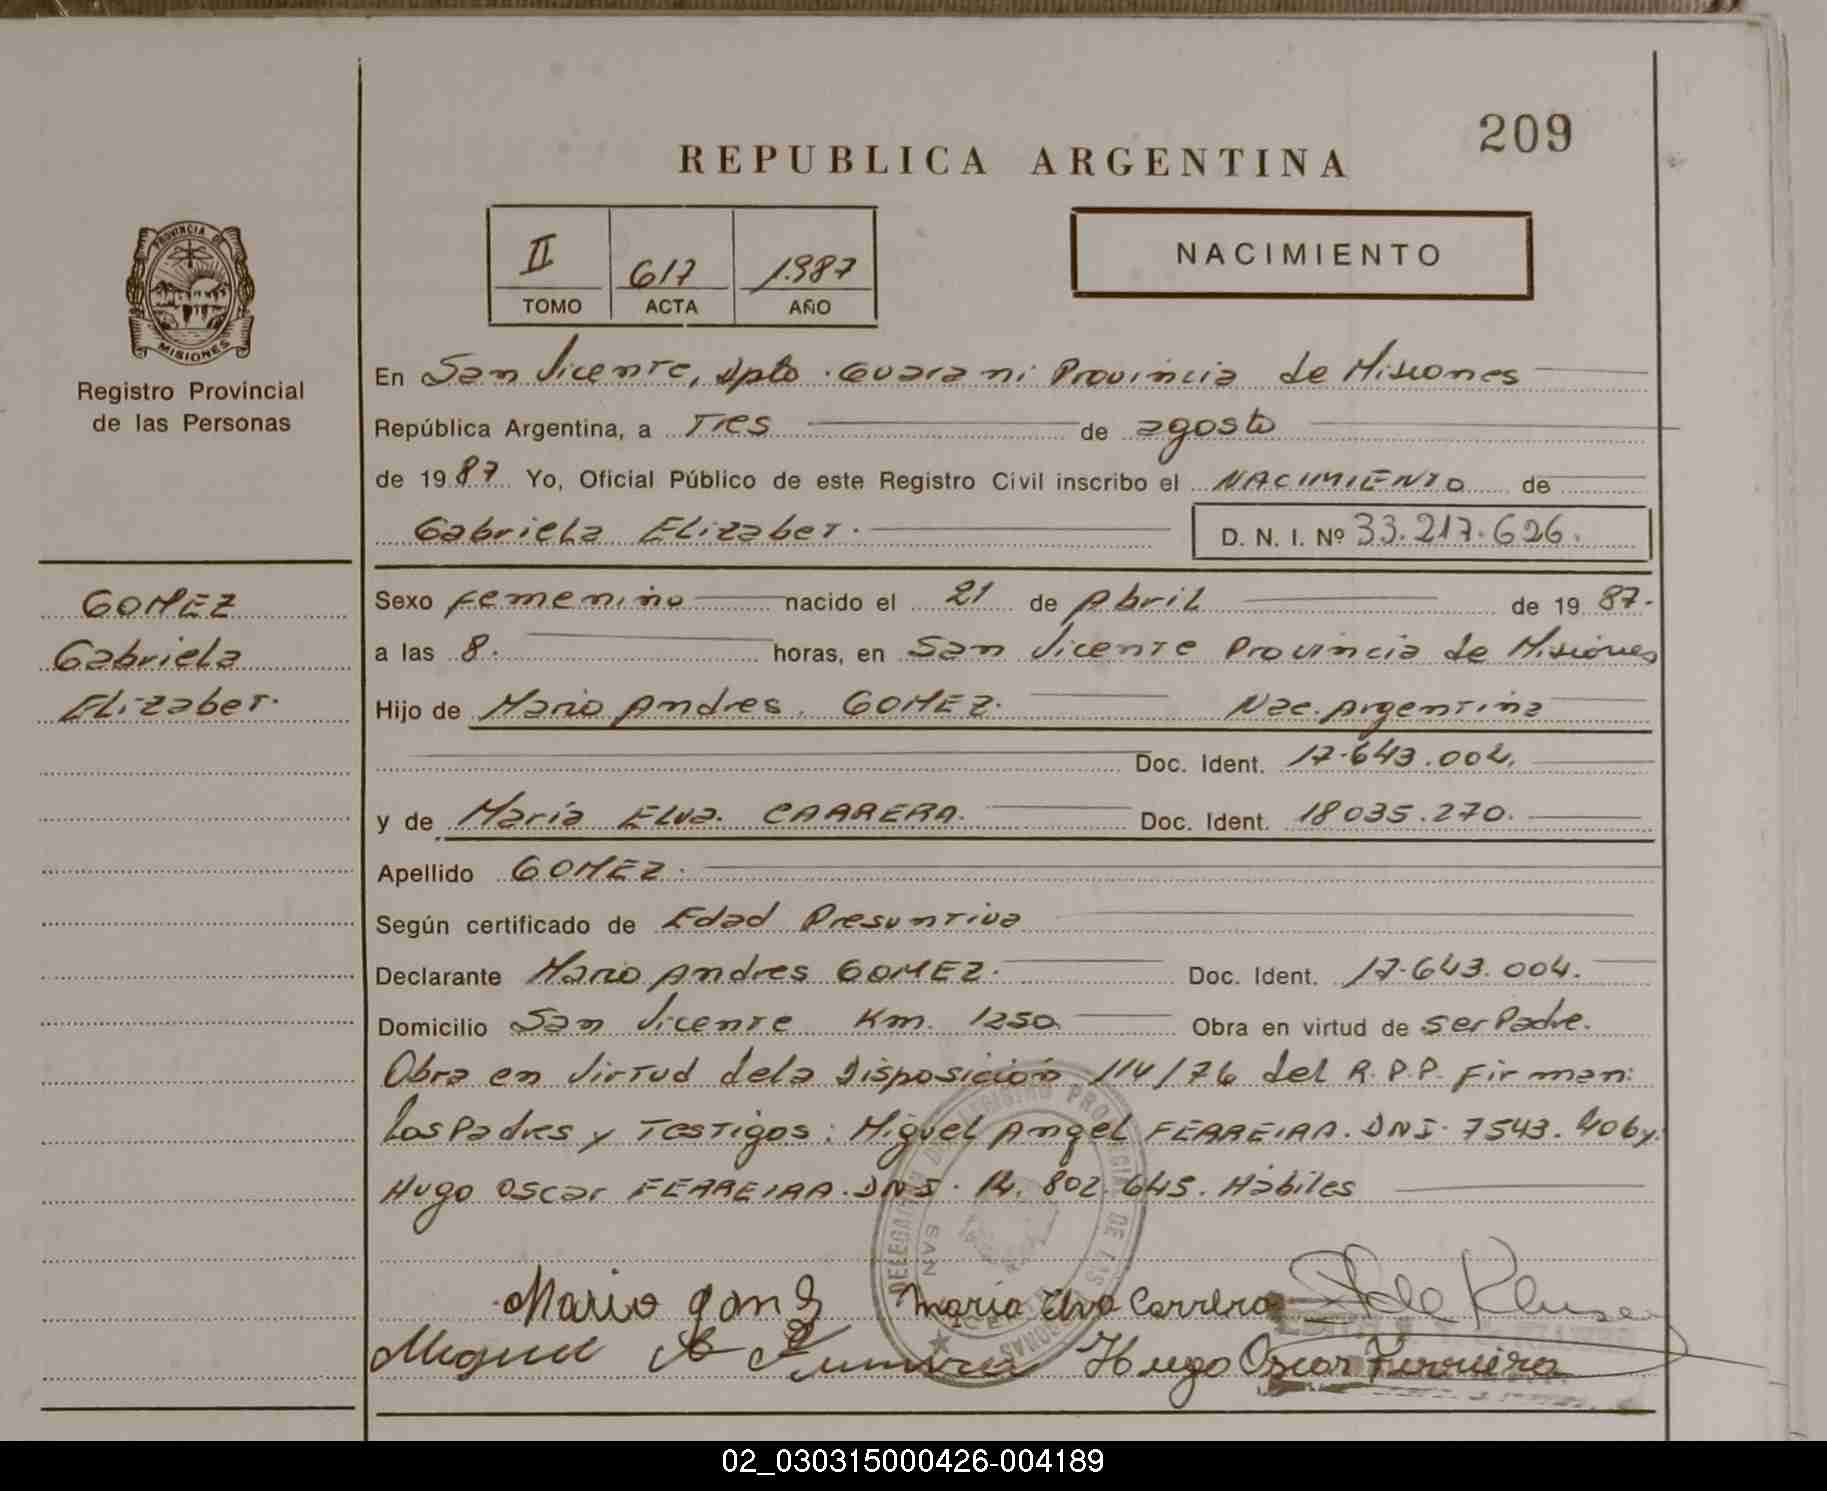 209
REPUBLICA ARGENTINA
II 617 1.987
TOMO ACTA AÑO
NACIMIENTO
PROVINCIA DE
MISIONES
Registro Provincial
de las Personas
En San Vicente, Dpto. Guarani Provincia de Misiones
República Argentina, a Tres de agosto
de 1987 Yo, Oficial Público de este Registro Civil inscribo el NACIMIENTO de
Gabriela Elizabet. D. N. I. Nº 33.217.626.
GOMEZ
Gabriela
Elizabet.
Sexo femenino nacido el 21 de Abril de 1987.
a las 8. horas, en San Vicente Provincia de Misiones
Hijo de Mario Andres GOMEZ. Nac. Argentina
Doc. Ident. 17.643.004.
y de María Elva. CARRERA. Doc. Ident. 18035.270.
Apellido GOMEZ.
Según certificado de Edad Presuntiva
Declarante Mario Andres GOMEZ. Doc. Ident. 17.643.004.
Domicilio San Vicente Km. 1250 Obra en virtud de ser Padre.
Obra en Virtud dela Disposición 114/76 del R.P.P. Firman:
los Padres y Testigos: Miguel Angel FERREIRA. DNI. 7543.406 y.
Hugo Oscar FERREIRA. DNI. 14.802.645. Habiles
DELEGACION DEL REGISTRO PROVINCIAL DE LAS PERSONAS
SAN VICENTE
Mario Gomez María Elva Carrera
Miguel A Ferreira Hugo Oscar Ferreira
02_030315000426-004189